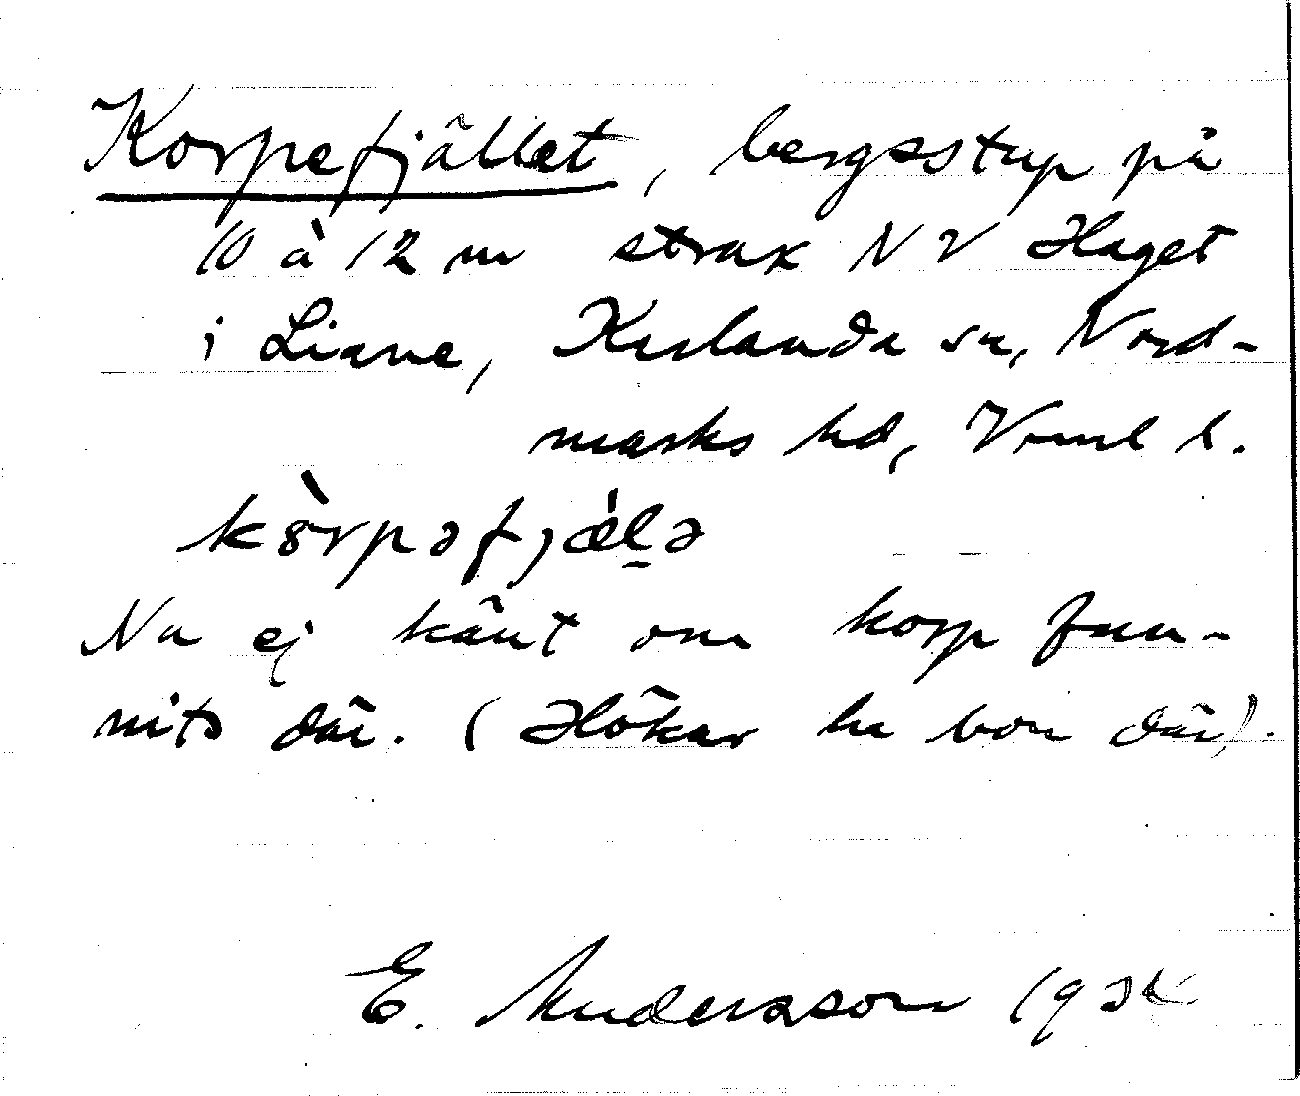 Korpefjället, bergsstup på
10 à 12 m strax NV Haget
i Liane, Karlanda sn, Nord-
marks hd, Vrml l.
kòrpəfjælə
Nu ej känt om korp fun-
nits där. (Hökar ha bon där).
E. Andersson